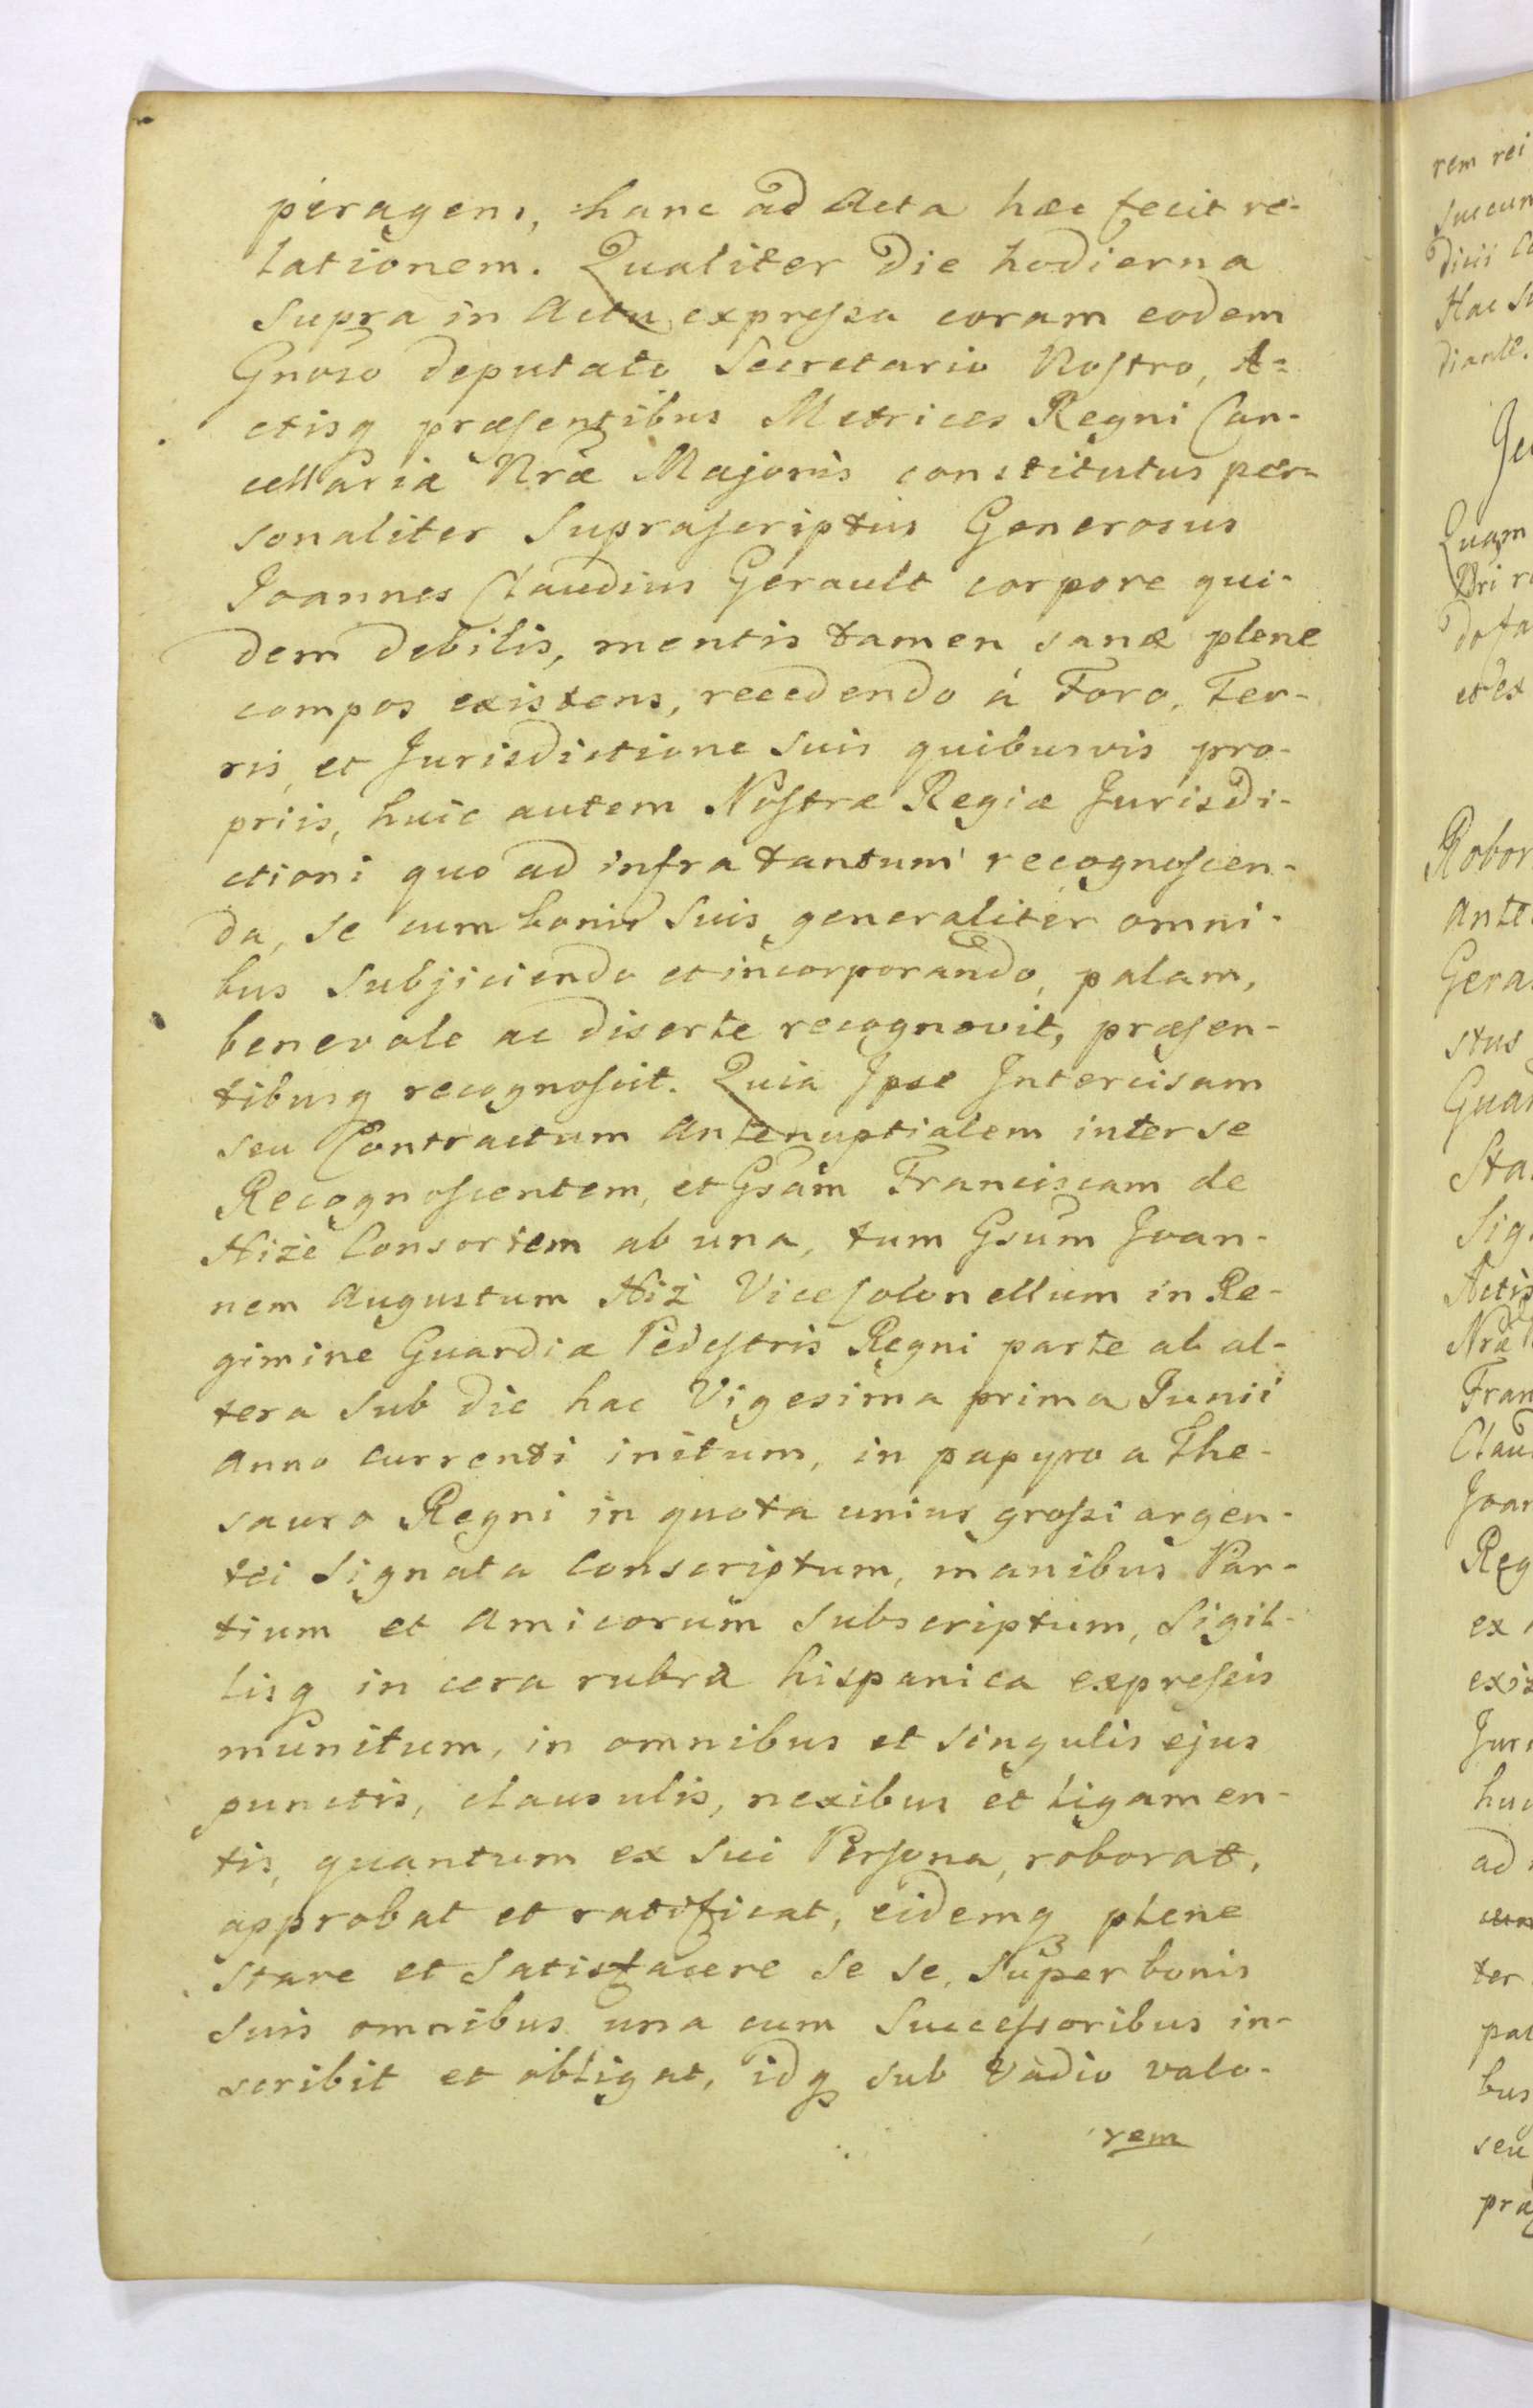 peragens, hanc ad Acta hæc fecit re-
lationem. Qualiter Die hodierna
Supra in Actu expressa coram eodem
Gnoso deputato Secretario Nostro, A-
ctisq præsentibus Metrices Regni Can-
cellariæ Nræ Majoris constitutus per-
sonaliter Suprascriptus Generosus
Joannes Claudius Gerault corpore qui-
dem debilis, mentis tamen sanæ plene
compos existens, recedendo à Foro, Ter-
ris, et Jurisdictione suis quibusvis pro-
priis, huic autem Nostræ Regiæ Jurisdi-
ctioni quo ad infra tantum recognoscen-
da, se cum bonis suis generaliter omni-
bus Subjiciendo et incorporando, palam,
benevole ac diserte recognovit, præsen-
tibusq recognoscit. Quia Ipse Intercisam
seu Contractum Antenuptialem inter se
Recognoscentem, et Gsam Franciscam de
Hiże Consortem ab una, tum Gsum Joan-
nem Augustum Hiż ViceColonellum in Re-
gimine Guardiæ Pedestris Regni parte ab al-
tera Sub die hac Vigesima prima Junii
Anno currenti initum, in papyro a The-
sauro Regni in quota unius grossi argen-
tei Signata Conscriptum, manibus Par-
tium et Amicorum Subscriptum, Sigil-
lisq in cera rubra hispanica expressis
munitum, in omnibus et singulis ejus
punctis, clausulis, nexibus et ligamen-
tis, quantum ex sui Persona, roborat,
approbat et ratificat, eidemq plene
Stare et Satisfacere se se, Super bonis
Suis omnibus una cum Successoribus in-
scribit et obligat, idq sub Vadio valo-
rem
rem rei
diante.
Quam
et ex
Robor
Ante
Gera
stus
Guar
Sta
Sig.
Actis
Nræ
Fran
Clau
Joan
Reg
ex
exis
Juri
hui
ad
ter
pal
bus
seu
præ